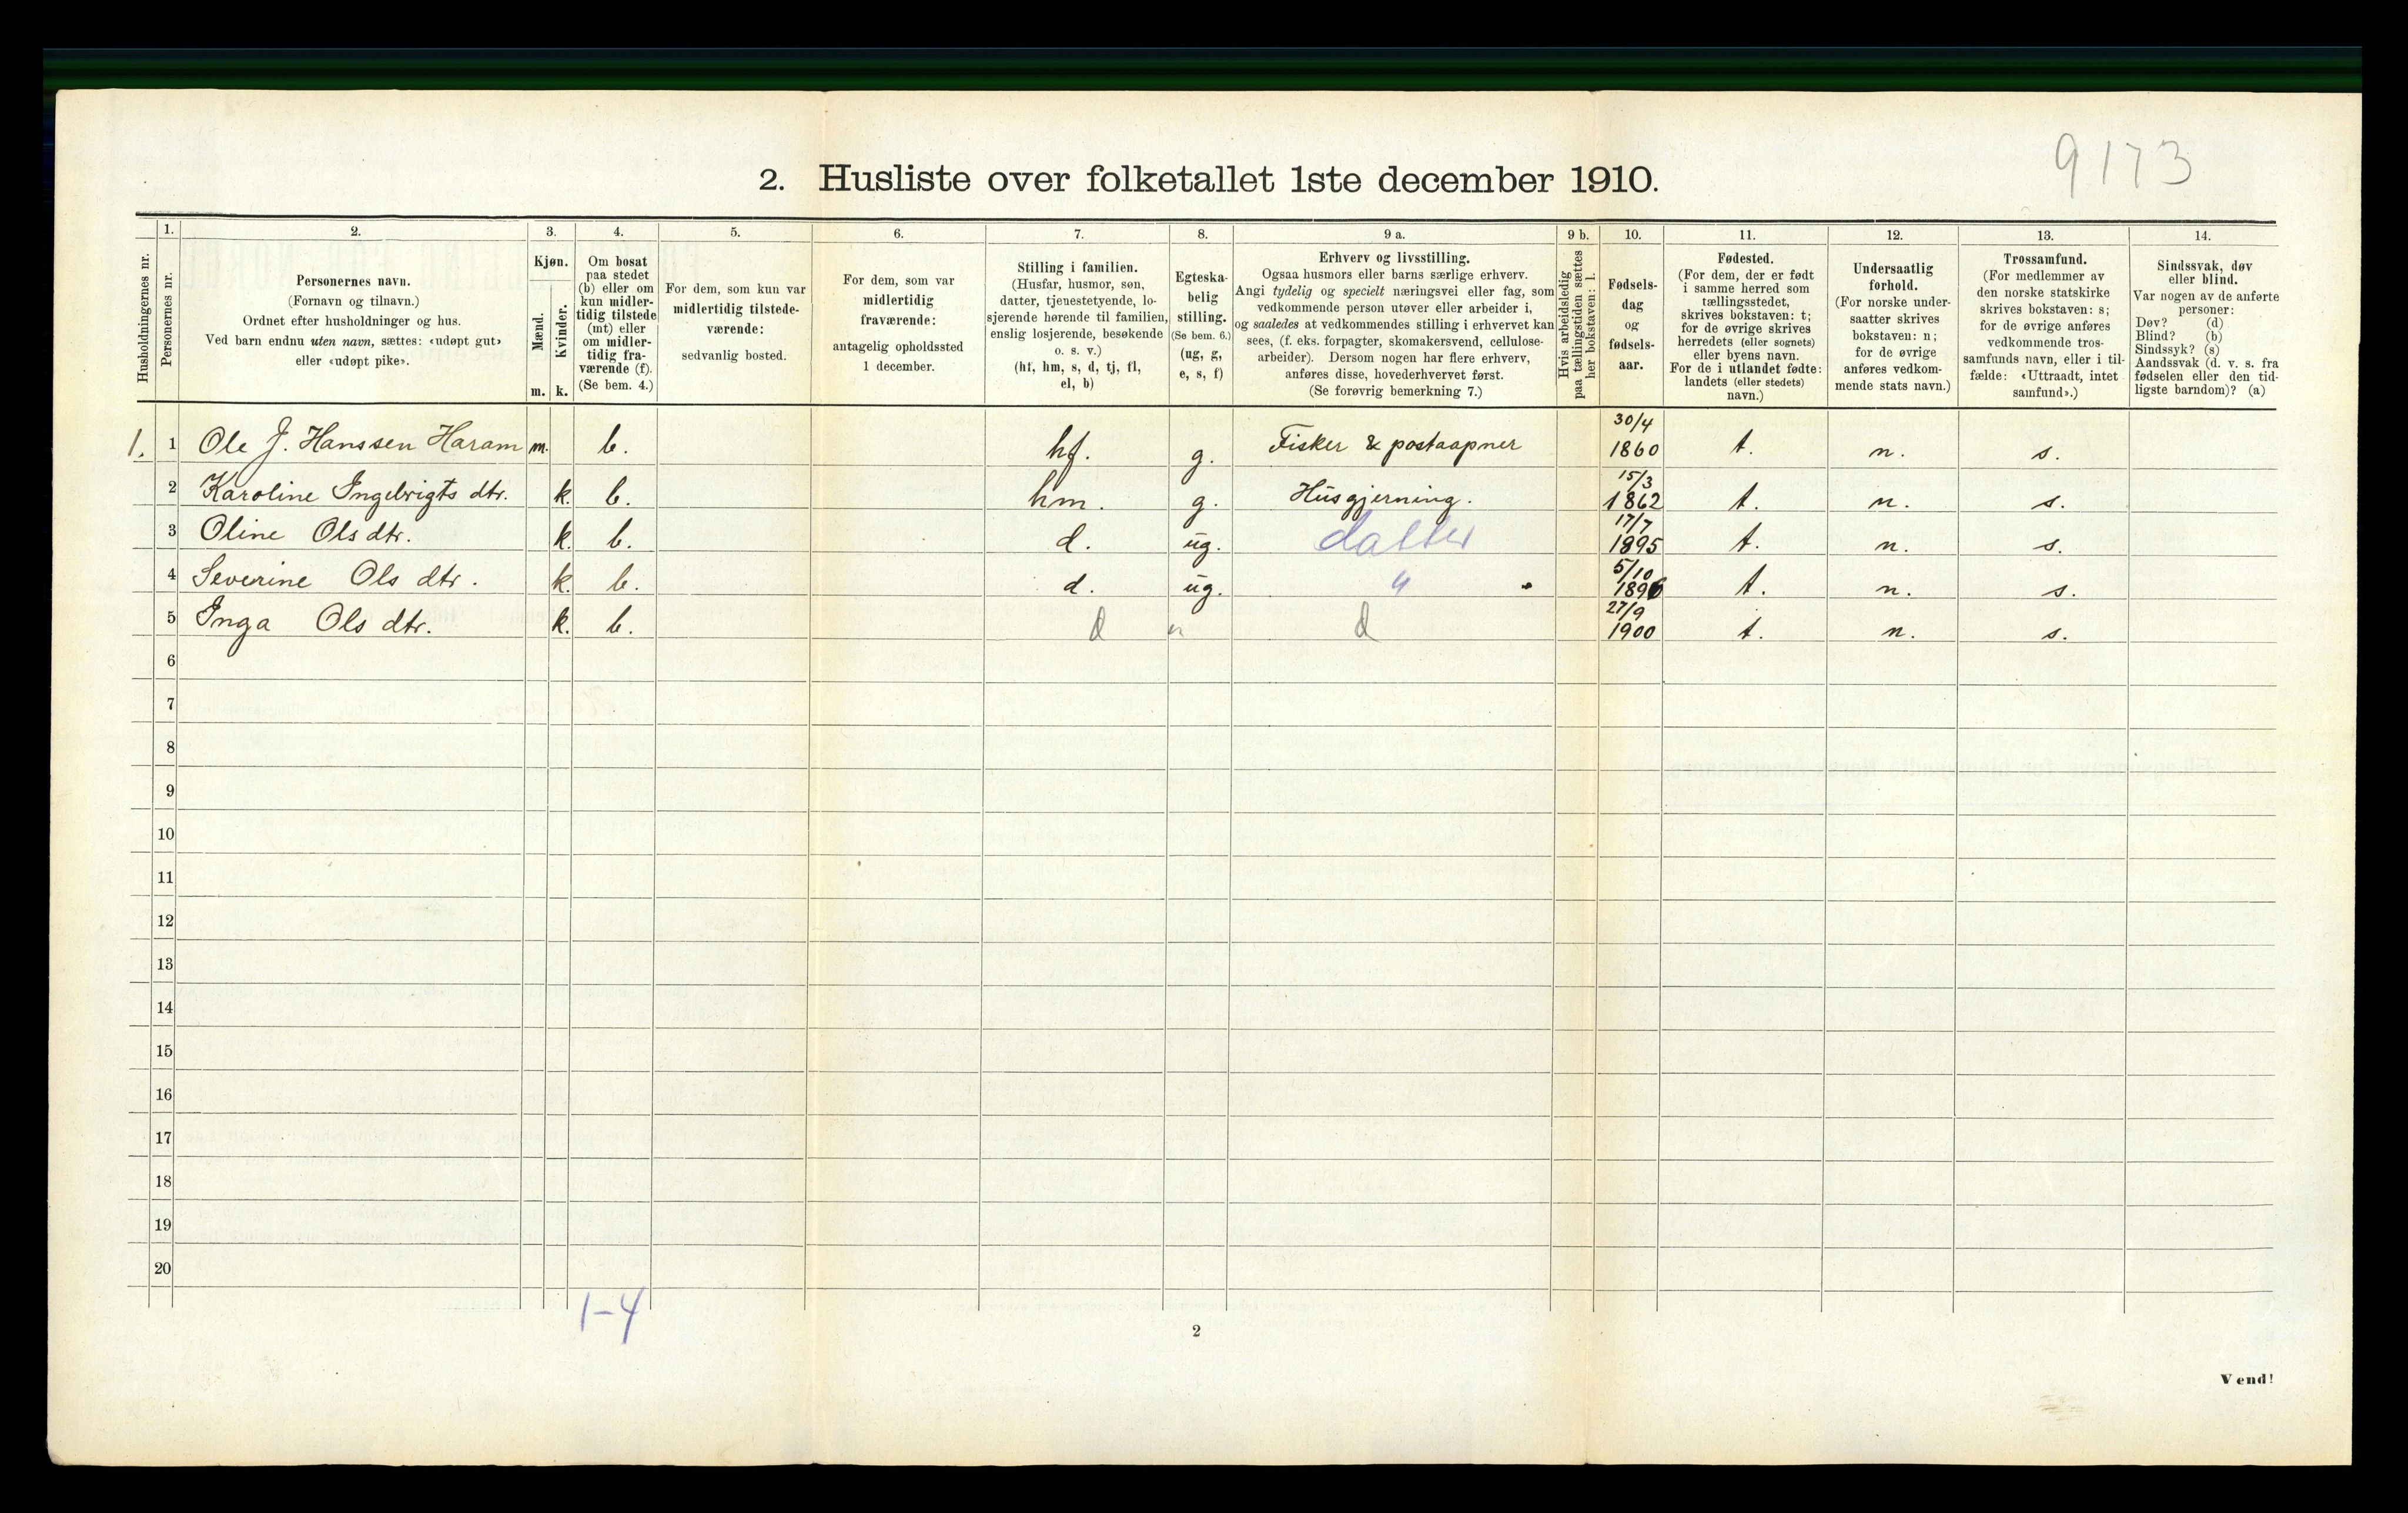 9173
2. Husliste over folketallet 1ste december 1910.
Husholdningernes nr.
1.
Personernes nr.
2.
Personernes navn.
(Fornavn og tilnavn.)
Ordnet efter husholdninger og hus.
Ved barn endnu uten navn, sættes: «udøpt gut»
eller «udøpt pike».
3.
Kjøn.
Mænd.
Kvinder.
m. k.
4.
Om bosat
paa stedet
(b) eller om
kun midler-
tidig tilstede
(mt) eller
om midler-
tidig fra-
værende (f).
(Se bem. 4.)
5.
For dem, som kun var
midlertidig tilstede-
værende:
sedvanlig bosted.
6.
For dem, som var
midlertidig
fraværende:
antagelig opholdssted
1 december.
7.
Stilling i familien.
(Husfar, husmor, søn,
datter, tjenestetyende, lo-
sjerende hørende til familien,
enslig losjerende, besøkende
o. s. v.)
(hf, hm, s, d, tj, fl,
el, b)
8.
Egteska-
belig
stilling.
(Se bem. 6.)
(ug, g,
e, s, f)
9 a.
Erhverv og livsstilling.
Ogsaa husmors eller barns særlige erhverv.
Angi tydelig og specielt næringsvei eller fag, som
vedkommende person utøver eller arbeider i,
og saaledes at vedkommendes stilling i erhvervet kan
sees, (f. eks. forpagter, skomakersvend, cellulose-
arbeider). Dersom nogen har flere erhverv,
anføres disse, hovederhvervet først.
(Se forøvrig bemerkning 7.)
9 b.
Hvis arbeidsledig
paa tællingstiden sættes
her bokstaven: l.
10.
Fødsels-
dag
og
fødsels-
aar.
11.
Fødested.
(For dem, der er født
i samme herred som
tællingsstedet,
skrives bokstaven: t;
for de øvrige skrives
herredets (eller sognets)
eller byens navn.
For de i utlandet fødte:
landets (eller stedets)
navn.)
12.
Undersaatlig
forhold.
(For norske under-
saatter skrives
bokstaven: n;
for de øvrige
anføres vedkom-
mende stats navn.)
13.
Trossamfund.
(For medlemmer av
den norske statskirke
skrives bokstaven: s;
for de øvrige anføres
vedkommende tros-
samfunds navn, eller i til-
fælde: «Uttraadt, intet
samfund».)
14.
Sindssvak, døv
eller blind.
Var nogen av de anførte
personer:
Døv? (d)
Blind? (b)
Sindssyk? (s)
Aandssvak (d. v. s. fra
fødselen eller den tid-
ligste barndom)? (a)
1. 1 Ole J. Hanssen Haram m. b. hf. g. Fisker & postaapner 30/4 1860 t. n. s.
2 Karoline Ingebrigts dtr. k. b. hm. g. Husgjerning. 15/3 1862 t. n. s.
3 Oline Ols dtr. k. b. d. ug. datter 17/7 1895 t. n. s.
4 Severine Ols dtr. k. b. d. ug. " 5/10 1896 t. n. s.
5 Inga Ols dtr. k. b. d d 27/9 1900 t. n. s.
6
7
8
9
10
11
12
13
14
15
16
17
18
19
20
1-4
2
Vend!